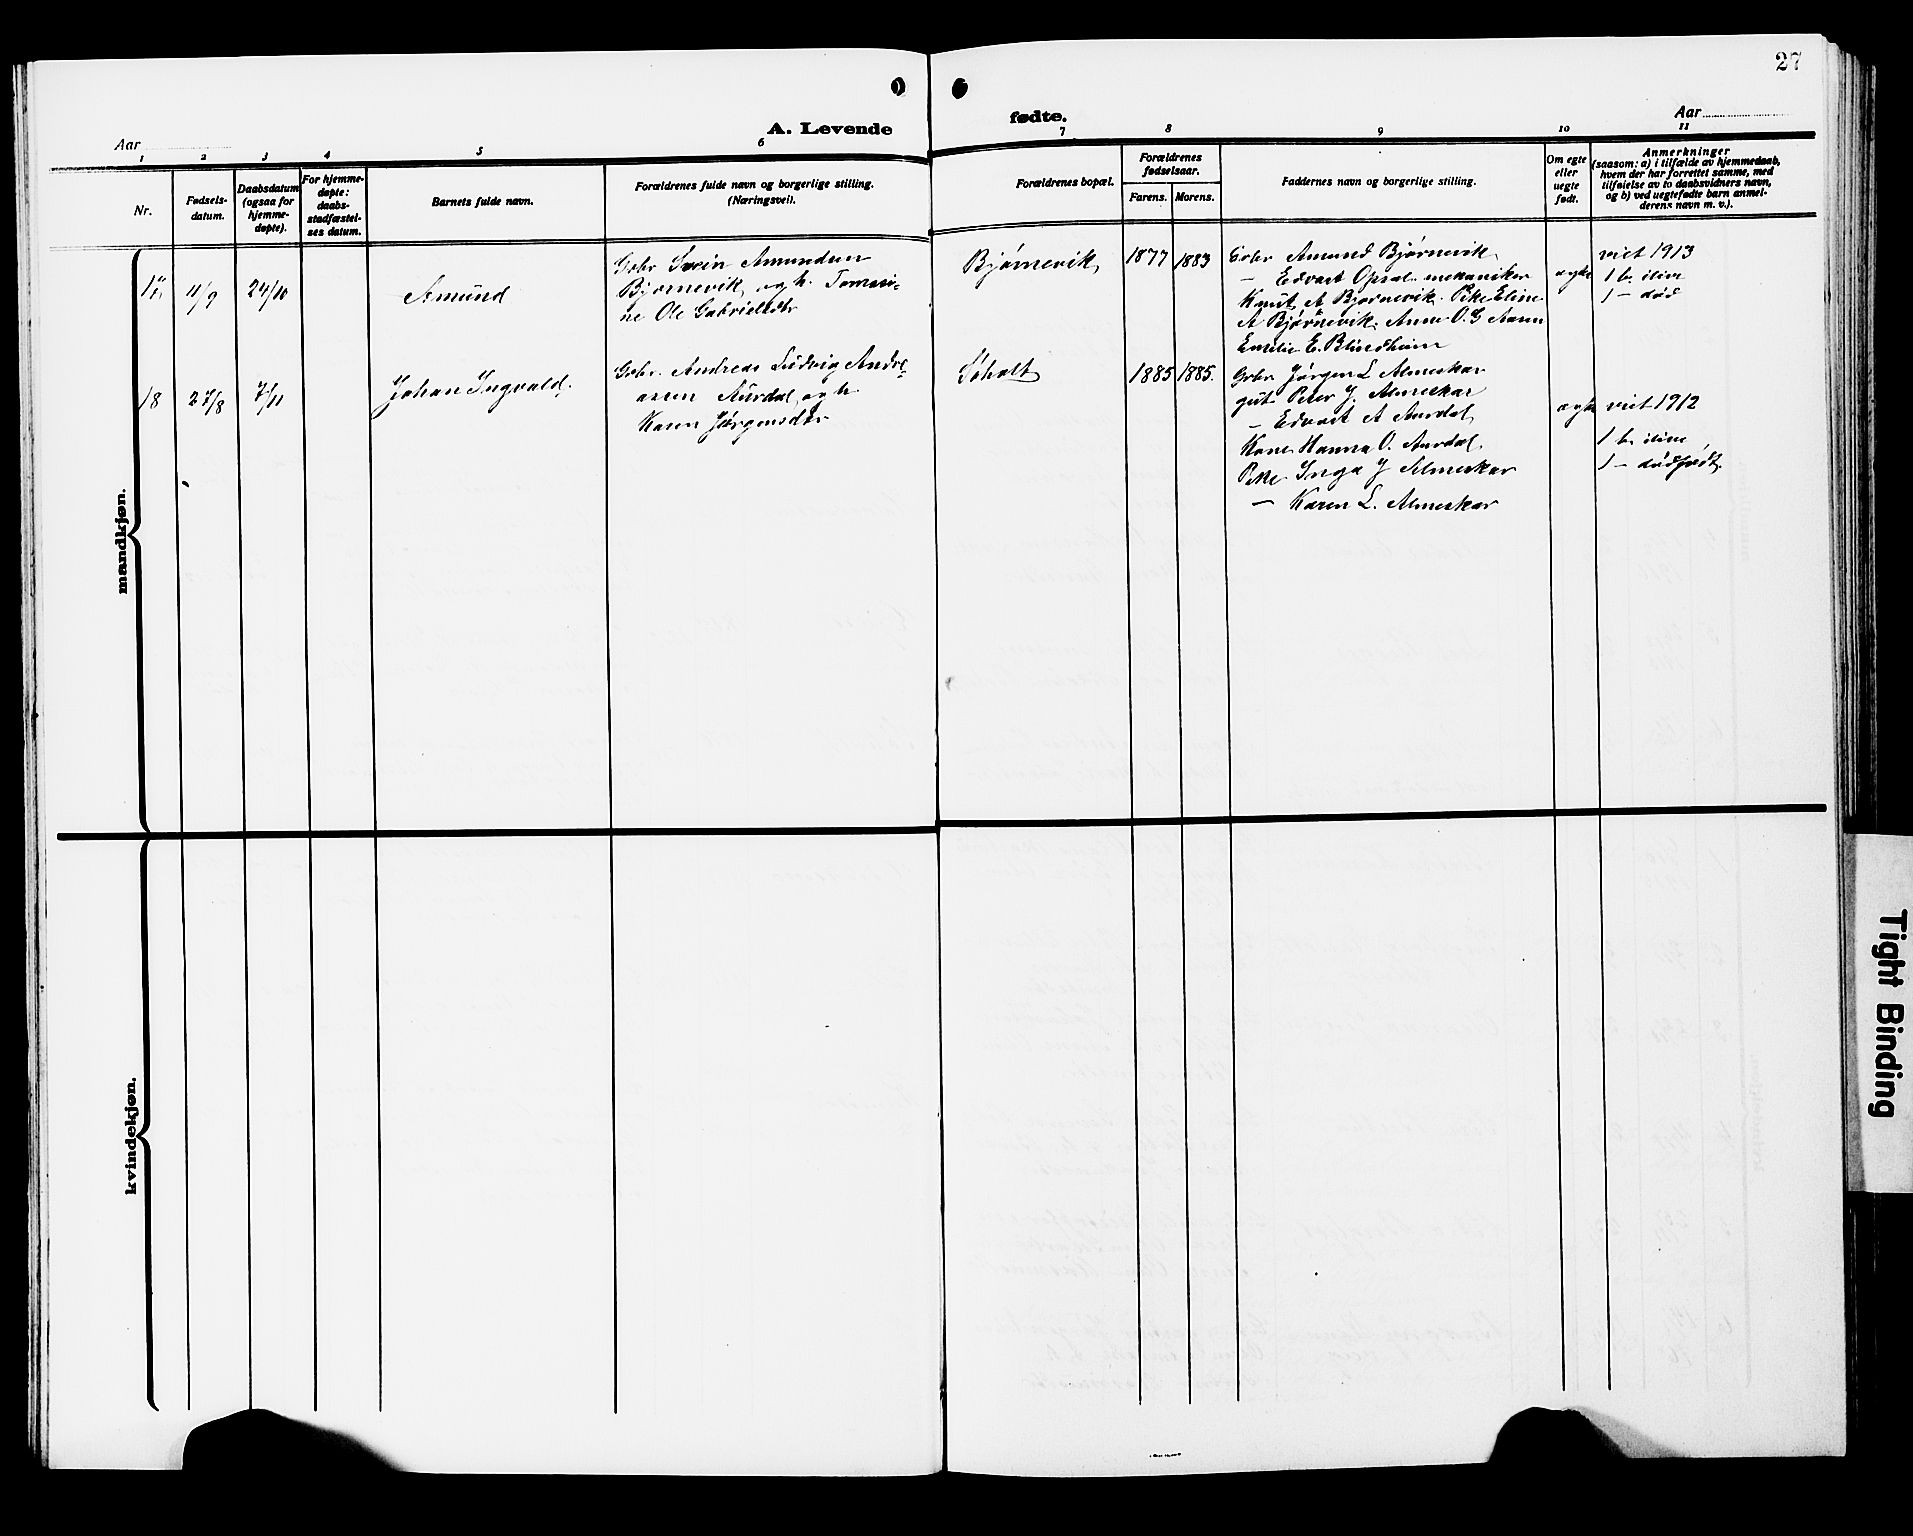 27
Aar
A. Levende
fødte.
Aar
1 2 3 4 5 6 7 8 9 10 11
Nr.
Fødsels-
datum.
Daabsdatum
(ogsaa for
hjemme-
døpte).
For hjemme-
døpte:
daabs-
stadfæstel-
ses datum.
Barnets fulde navn.
Forældrenes fulde navn og borgerlige stilling.
(Næringsvei).
Forældrenes bopæl.
Forældrenes
fødselsaar.
Farens. Morens.
Faddernes navn og borgerlige stilling.
Om egte
eller
uegte
født.
Anmerkninger
(saasom: a) i tilfælde av hjemmedaab,
hvem der har forrettet samme, med
tilføielse av to daabsvidners navn,
og b) ved uegtefødte barn anmel-
derens navn m. v.).
mandkjøn.
11/9
24/10
Amund
Gbr. Svein Amundsen
Bjørnevik og h. Tomasi-
ne Ole Gabrielsdtr
Bjørnevik
1877
1883
Gbr Amund Bjørnevik
— Edvart Opsal mekaniker
Knut A Bjørnevik. Pike Eline
A Bjørnevik. Anne O. G Aasen
Emilie E. Blindheim
ægte
viet 1913
1 b. ilive
1 — død
18
27/8
7/11
Johan Ingvald.
Gbr. Andreas Ludvig Andre-
assen Aurdal og h
Karen Jørgensdtr
Søholt
1885
1885.
Gbr Jørgen L Almeskar
gut Peter J. Almeskar
— Edvart A Aurdal
Kone Hanna O. Aurdal
Pike Inga J Almeskar
— Karen L. Almeskar
ægte
viet 1912
1 b. ilive,
1 — dødfødt.
kvindekjøn.
Tight Binding